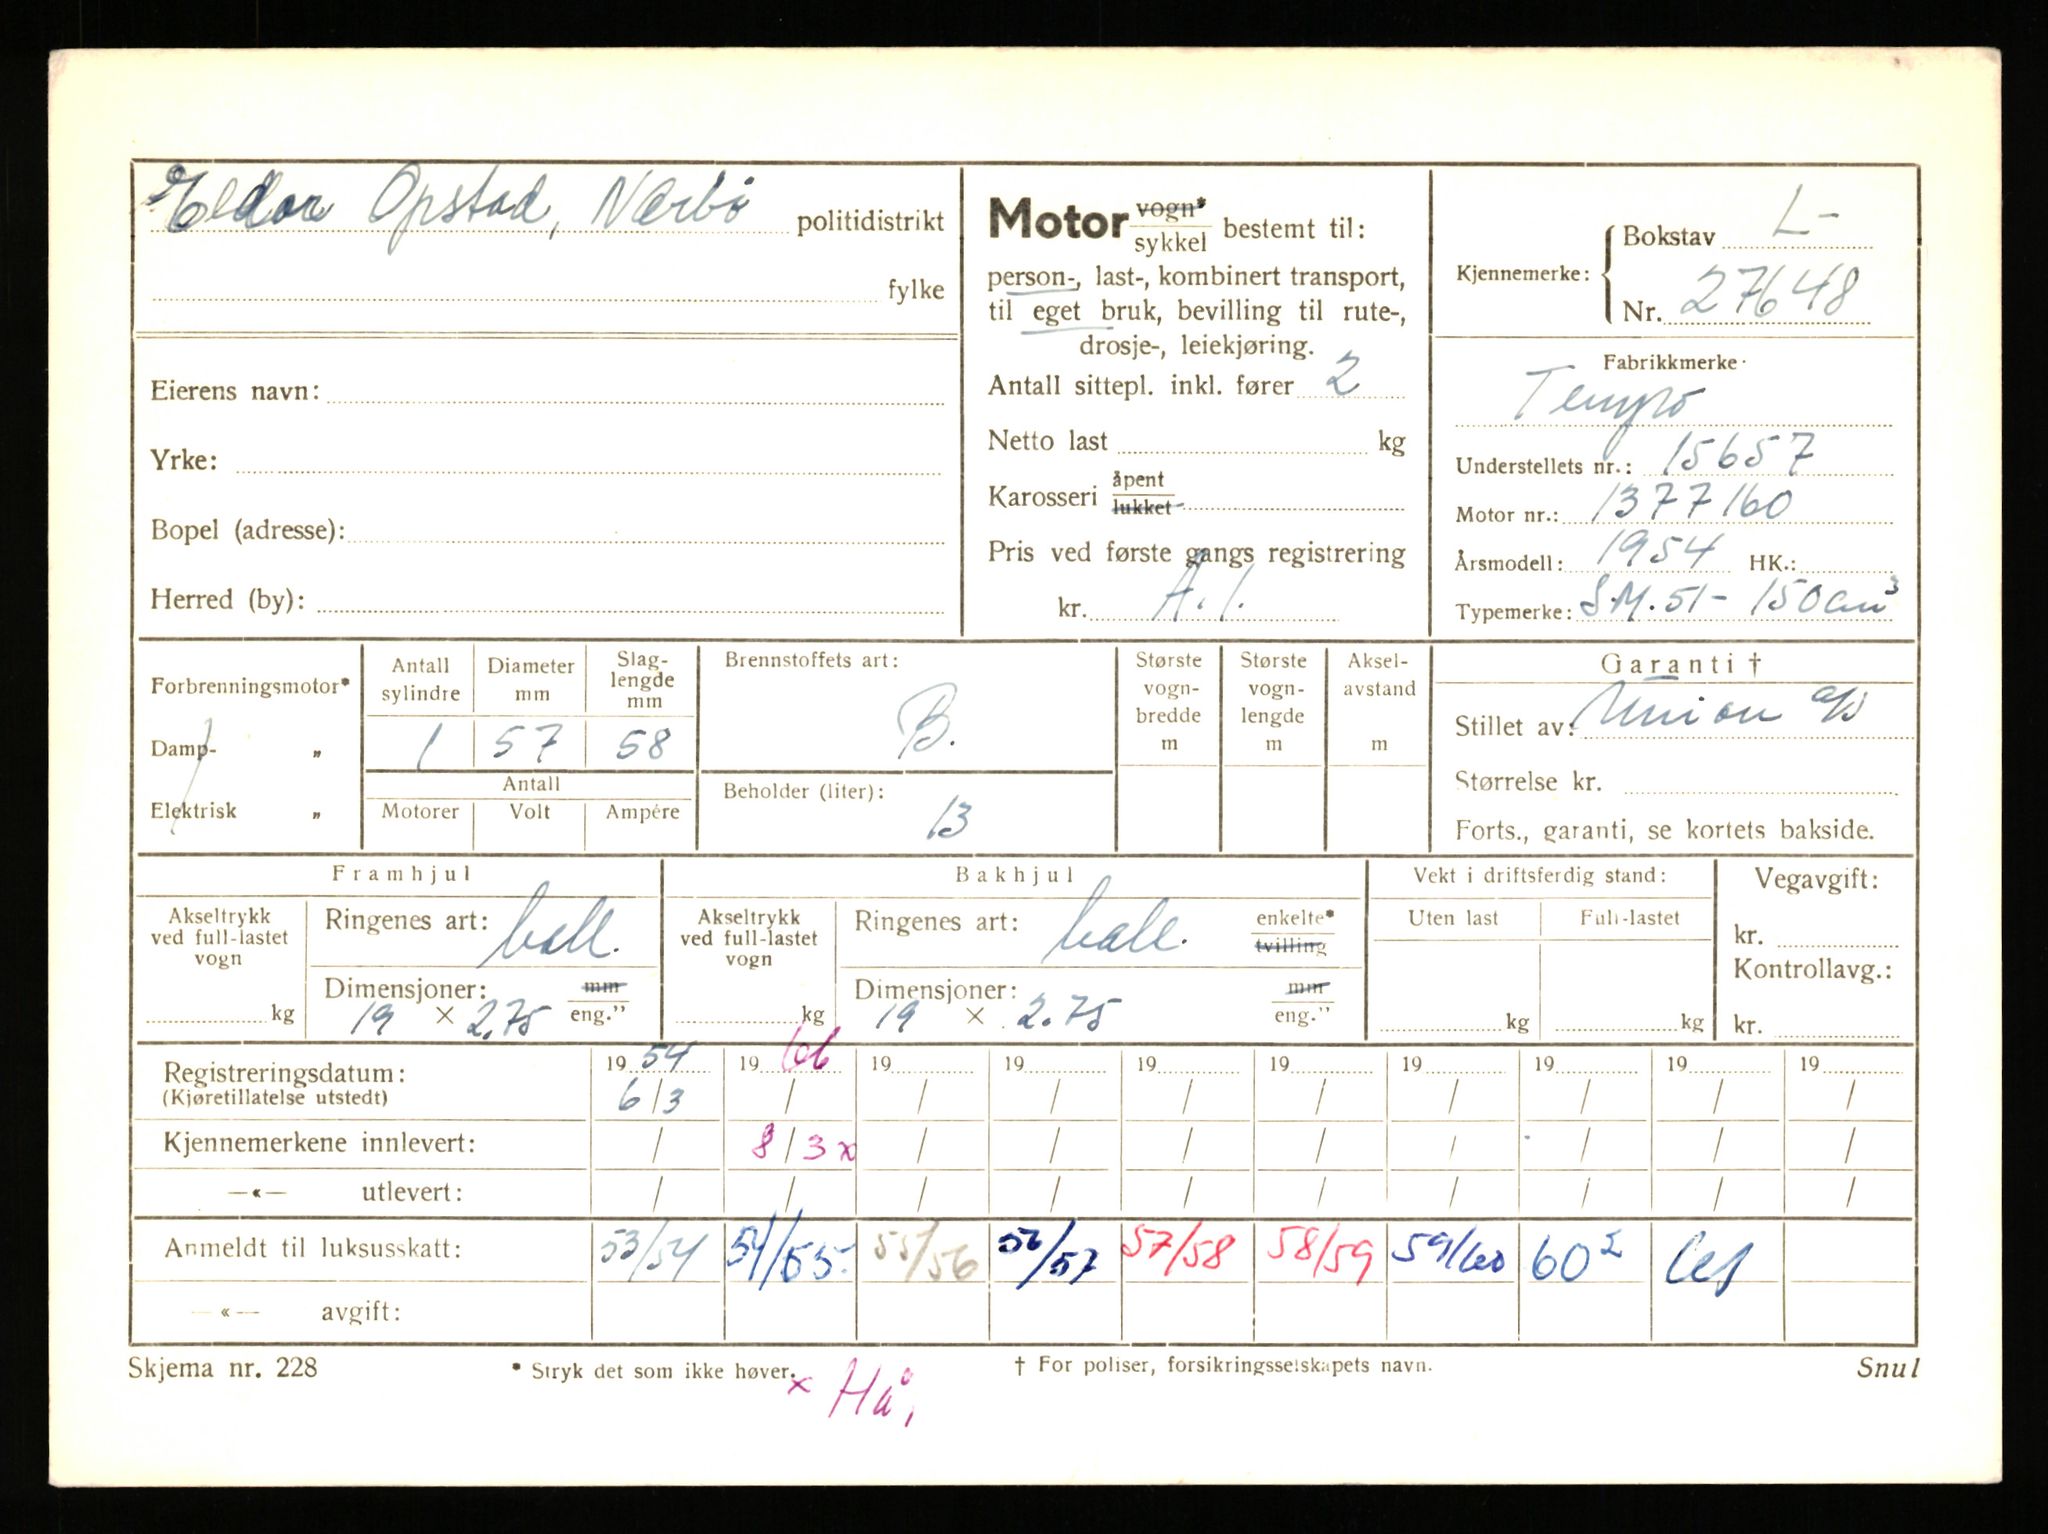 Eldar Opstad, Nærbø politidistrikt
fylke
Eierens navn:
Yrke:
Bopel (adresse):
Herred (by):
Motor vogn* sykkel bestemt til:
person-, last-, kombinert transport,
til eget bruk, bevilling til rute-,
drosje-, leiekjøring.
Antall sittepl. inkl. fører 2
Netto last kg
Karosseri åpent lukket
Pris ved første gangs registrering
kr. A.1.
Kjennemerke: Bokstav L-
Nr. 27648
Fabrikkmerke:
Tempo
Understellets nr.: 15657
Motor nr.: 1377160
Årsmodell: 1954 HK.:
Typemerke: S.M. 51 - 150 cm³
Forbrenningsmotor*
Damp- „
Elektrisk „
Antall sylindre
1
Diameter mm
57
Slaglengde mm
58
Antall
Motorer Volt Ampére
Brennstoffets art:
B.
Beholder (liter):
13
Største vognbredde m
Største vognlengde m
Akselavstand m
Garanti †
Stillet av: Union a/s
Størrelse kr.
Forts., garanti, se kortets bakside.
Framhjul
Akseltrykk ved full-lastet vogn
kg
Ringenes art: ball.
Dimensjoner: mm
19 × 2.75 eng."
Bakhjul
Akseltrykk ved full-lastet vogn
kg
Ringenes art: ball. enkelte* tvilling
Dimensjoner: mm
19 × 2.75 eng."
Vekt i driftsferdig stand:
Uten last Full-lastet
kg kg
Vegavgift:
kr.
Kontrollavg.:
kr.
19 54 19 66 19 19 19 19 19 19 19 19
Registreringsdatum:
(Kjøretillatelse utstedt) 6/3 / / / / / / / / /
Kjennemerkene innlevert: / 8/3 x / / / / / / / /
—«— utlevert: / / / / / / / / / /
Anmeldt til luksusskatt: 53/54 54/55 55/56 56/57 57/58 58/59 59/60 60²
—«— avgift:
Skjema nr. 228 * Stryk det som ikke høver. † For poliser, forsikringsselskapets navn. Snul
× Hå,